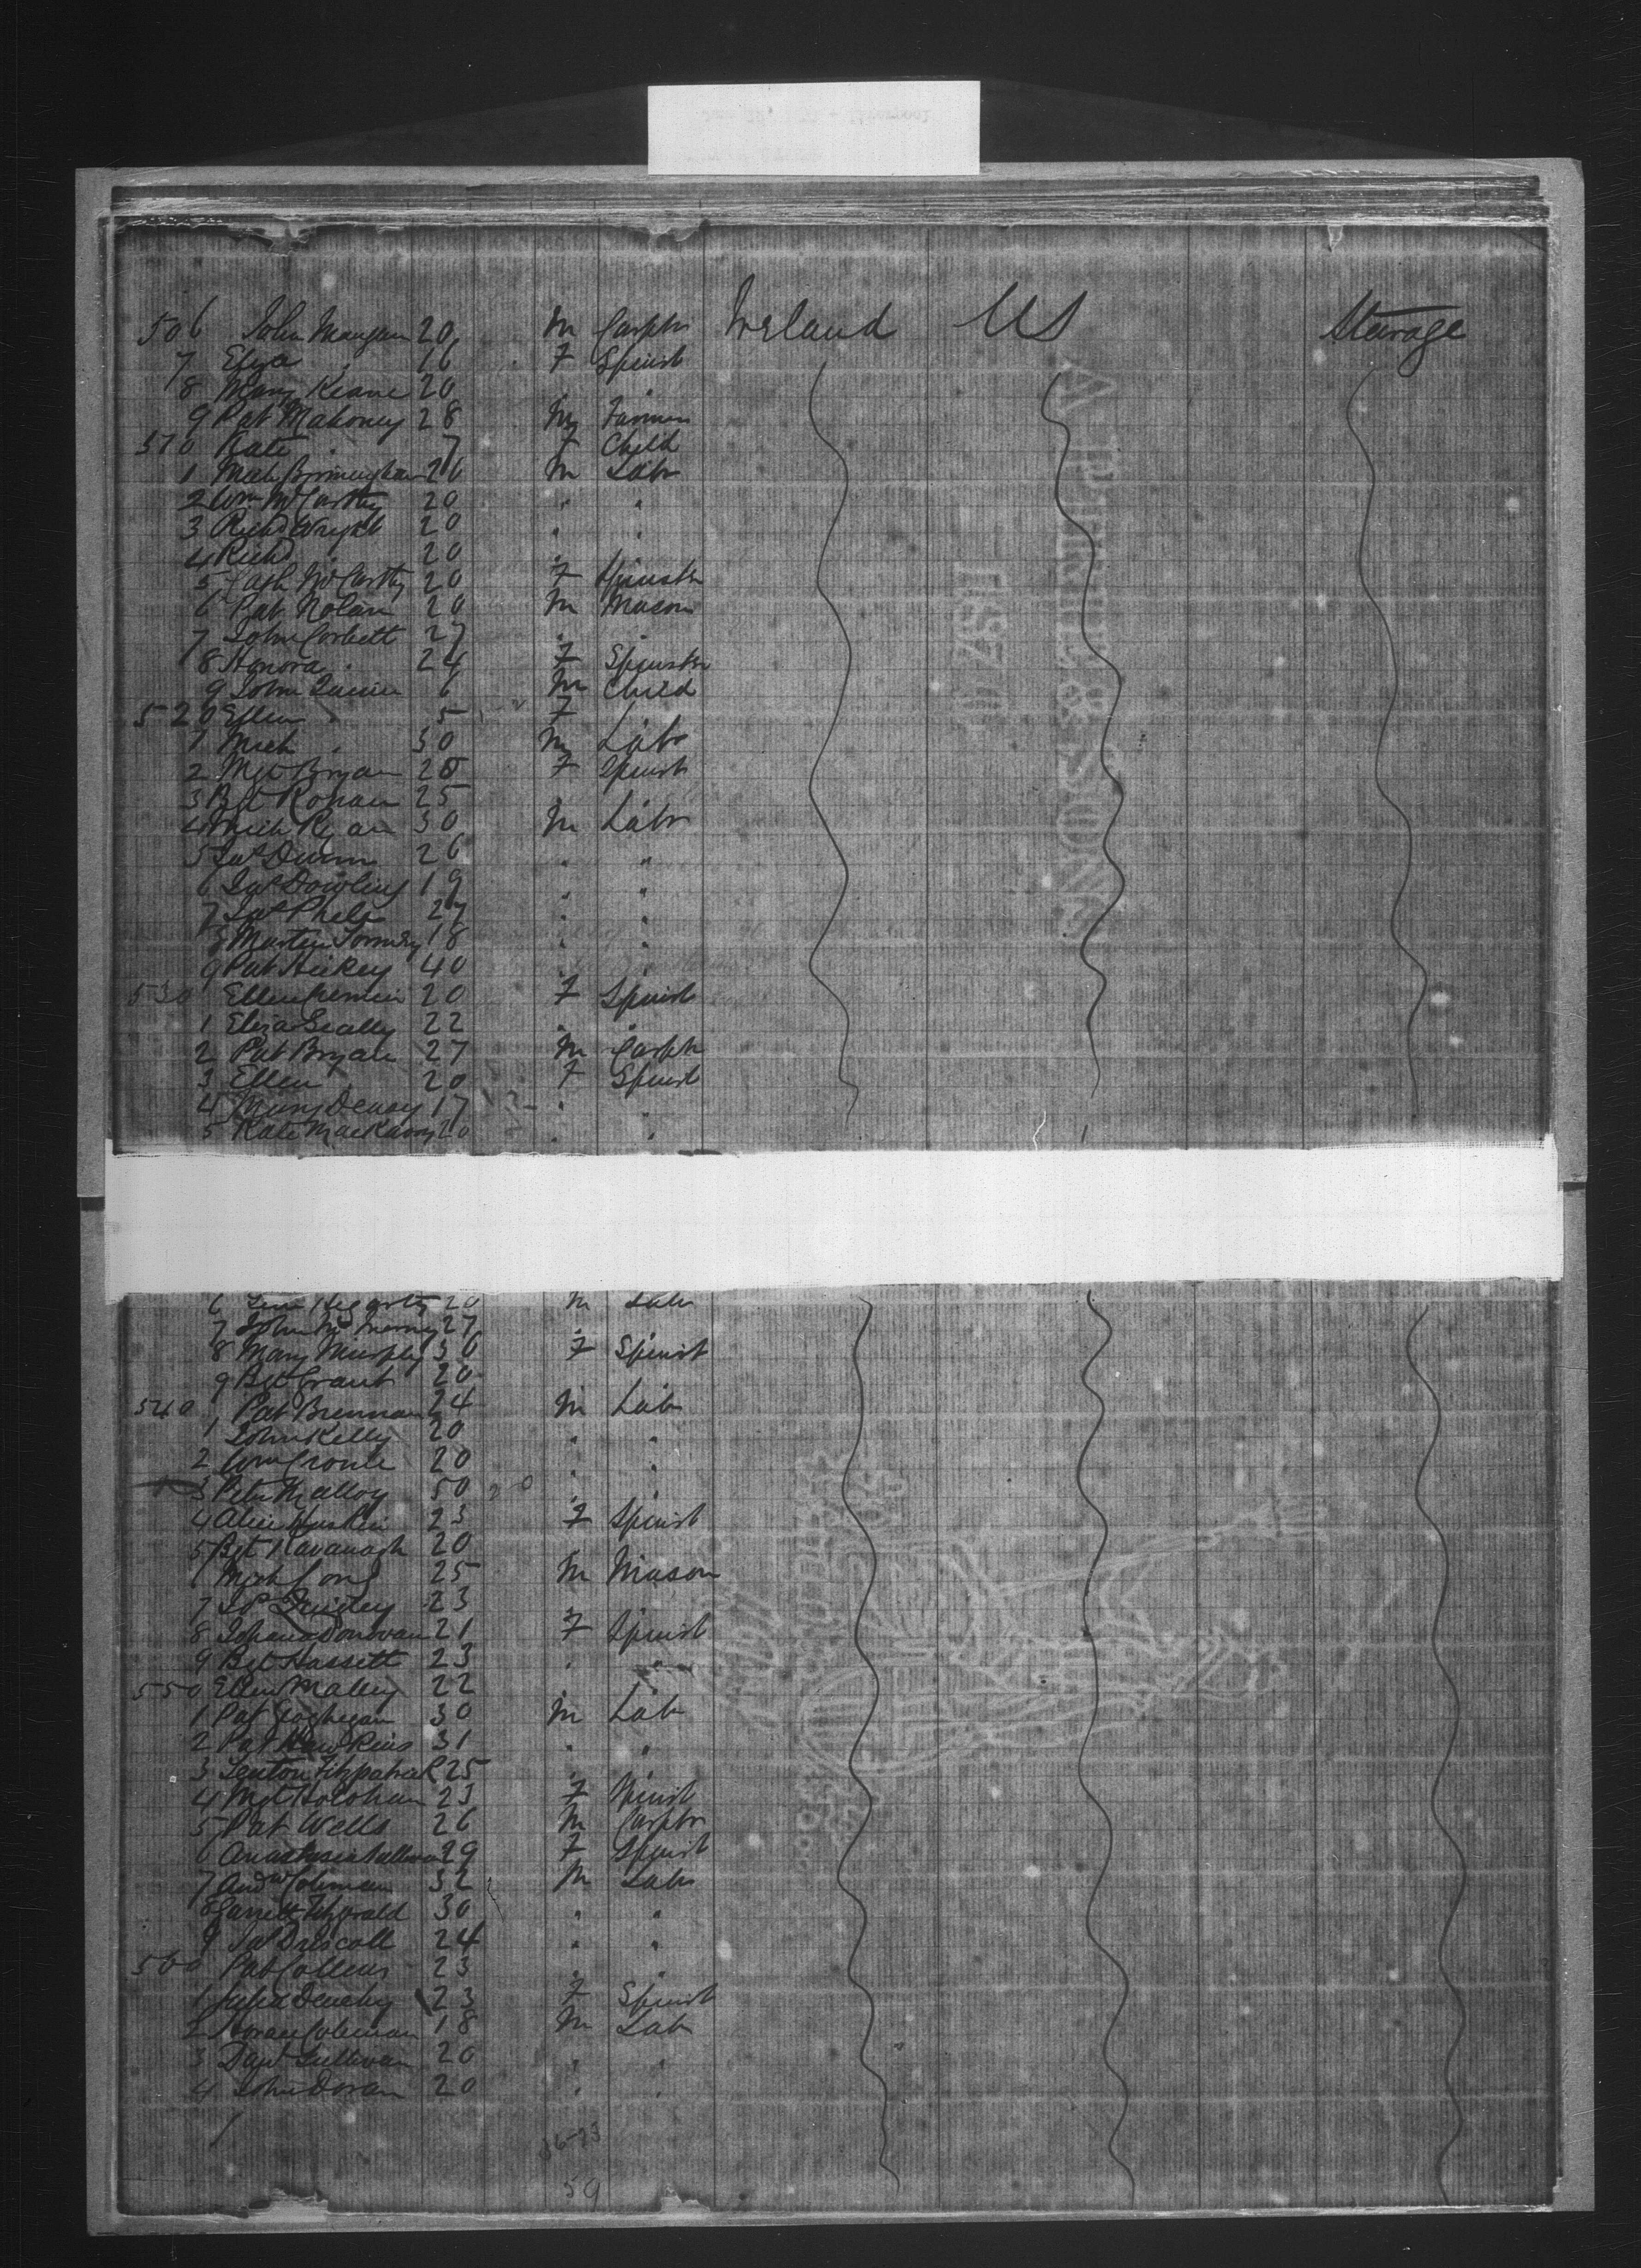 506 John Mangan 20 M Carptr Ireland US Steerage
7 Eliza " 16 F Spinst
8 Mary Keane 20 " "
9 Pat Mahoney 28 M Farmer
510 Kate " 7 F Child
1 Mich Birmingham 26 M Labr
2 Wm McCarthy 20 " "
3 Richd Wright 20 " "
4 Richd " 20
5 Cath McCarthy 20 F Spinster
6 Pat Nolan 20 M Mason
7 John Corbett 27 " "
8 Honora " 24 F Spinster
9 John 6 M Child
520 Ellen " 5 F
1 Mich " 30 M Labr
2 Mgt Bryan 20 F Spinst
3 Bgt Rohan 25 " "
4 Mich Ryan 30 M Labr
5 Jas Dunn 26 " "
6 Jas Dowling 19 " "
7 27 " "
8 Martin 18 " "
9 Pat Hickey 40 " "
530 Ellen Cremin 20 F Spinst
1 Eliza Scally 22 " "
2 Pat Bryan 27 M Carptr
3 Ellen " 20 F Spinst
4 Mary Deasy 17 " "
5 Kate 20 " "
6 Hegarty 20 M Labr
7 John 27 " "
8 Mary Murphy 30 F Spinst
9 Bgt Grant 20 " "
540 Pat Brennan 24 M Labr
1 John Kelly 20 " "
2 Wm 20 " "
3 Peter Malloy 50 " "
4 Alice 23 F Spinst
5 Bgt Kavanagh 20
6 Mich Long 25 M Mason
7 23
8 Johana Donovan 21 F Spinst
9 Bgt Hassett 23 " "
550 Ellen Malley 22
1 Pat Goghegan 30 M Labr
2 Pat Hawkins 31 " "
3 Fitzpatrick 25
4 Mgt Holohan 23 F Spinst
5 Pat Wells 26 M Carptr
6 Anastasia Sullivan 29 F Spinst
7 Andw Coleman 32 M Labr
8 Garrett Fitzgerald 30 " "
9 Jas Driscoll 24 " "
560 Pat Collins 23 " "
1 Julia 23 F Spinst
2 Coleman 18 M Labr
3 Danl Sullivan 20 " "
4 John Doran 20 " "
59